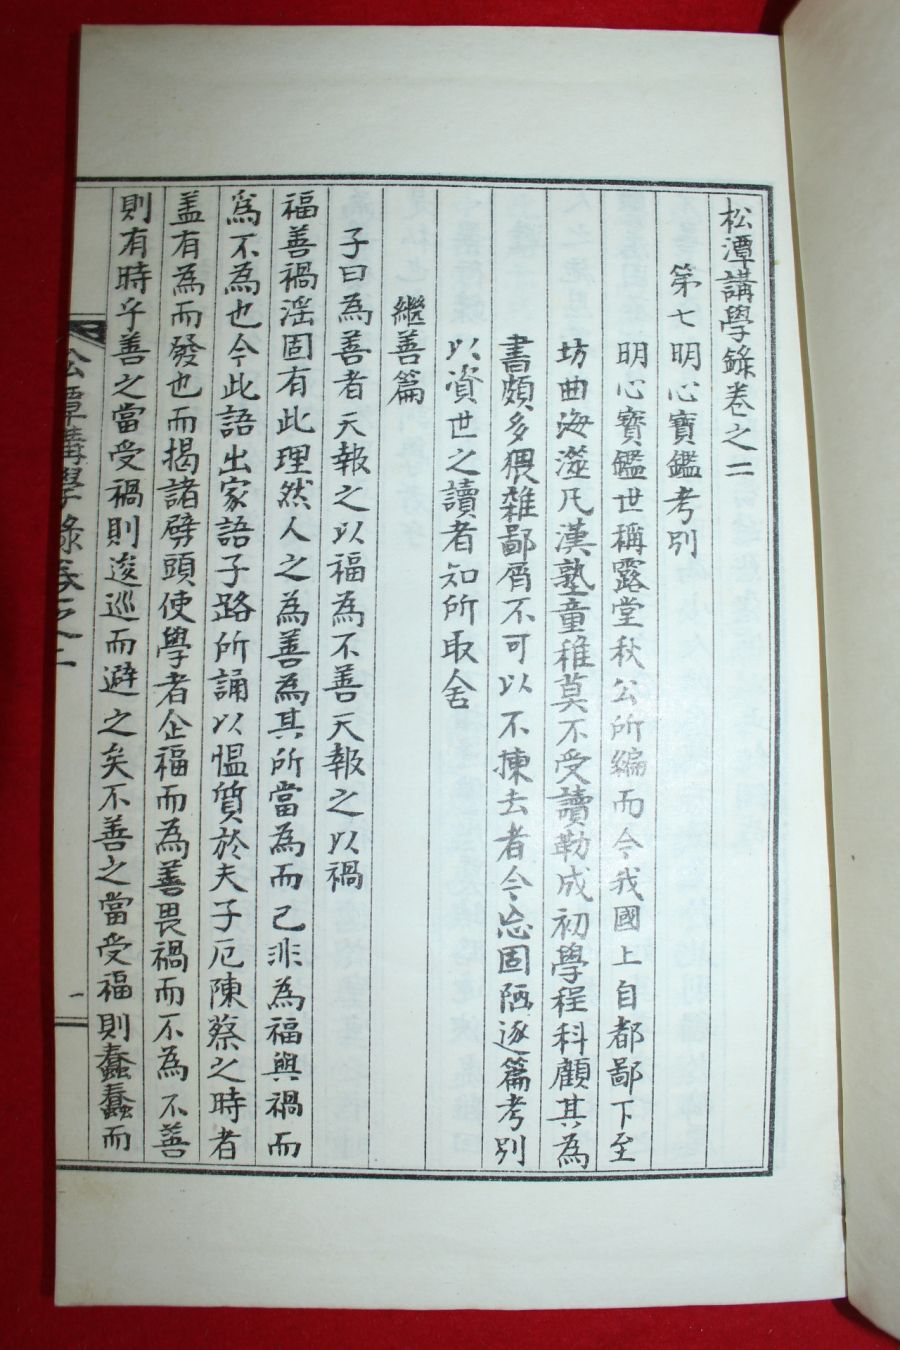 松潭講學錄卷之二
第七明心寶鑑考別
明心寶鑑世稱露堂秋公所編而今我國上自都鄙下至
坊曲海澨氏漢塾童稚莫不受讀勒成初學程科顧其為
書頗多猥雜鄙屑不可以不揀去者今忘固陋逐篇考別
以資世之讀者知所取舍
繼善篇
子曰為善者天報之以福為不善天報之以禍
福善禍淫固有此理然人之為善為其所當為而已非為福與禍而
爲不為也今此語出家語子路所誦以慍質於夫子厄陳蔡之時者
盖有為而發也而揭諸劈頭使學者企福而為善畏禍而不為不善
則有時乎善之當受禍則逡巡而避之矣不善之當受福則蠢蠢而
松潭講學錄卷之二
一